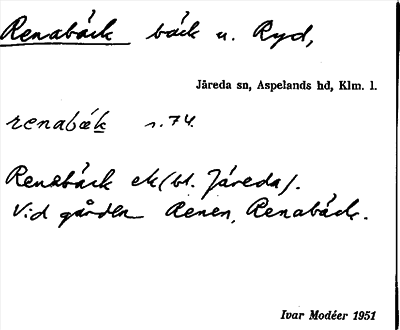 Renabäck bäck u. Ryd,
Järeda sn, Aspelands hd, Klm. l.
renabæk s. 74.
Renabäck ek (bl. Järeda).
Vid gården Renen, Renabäck.
Ivar Modéer 1951